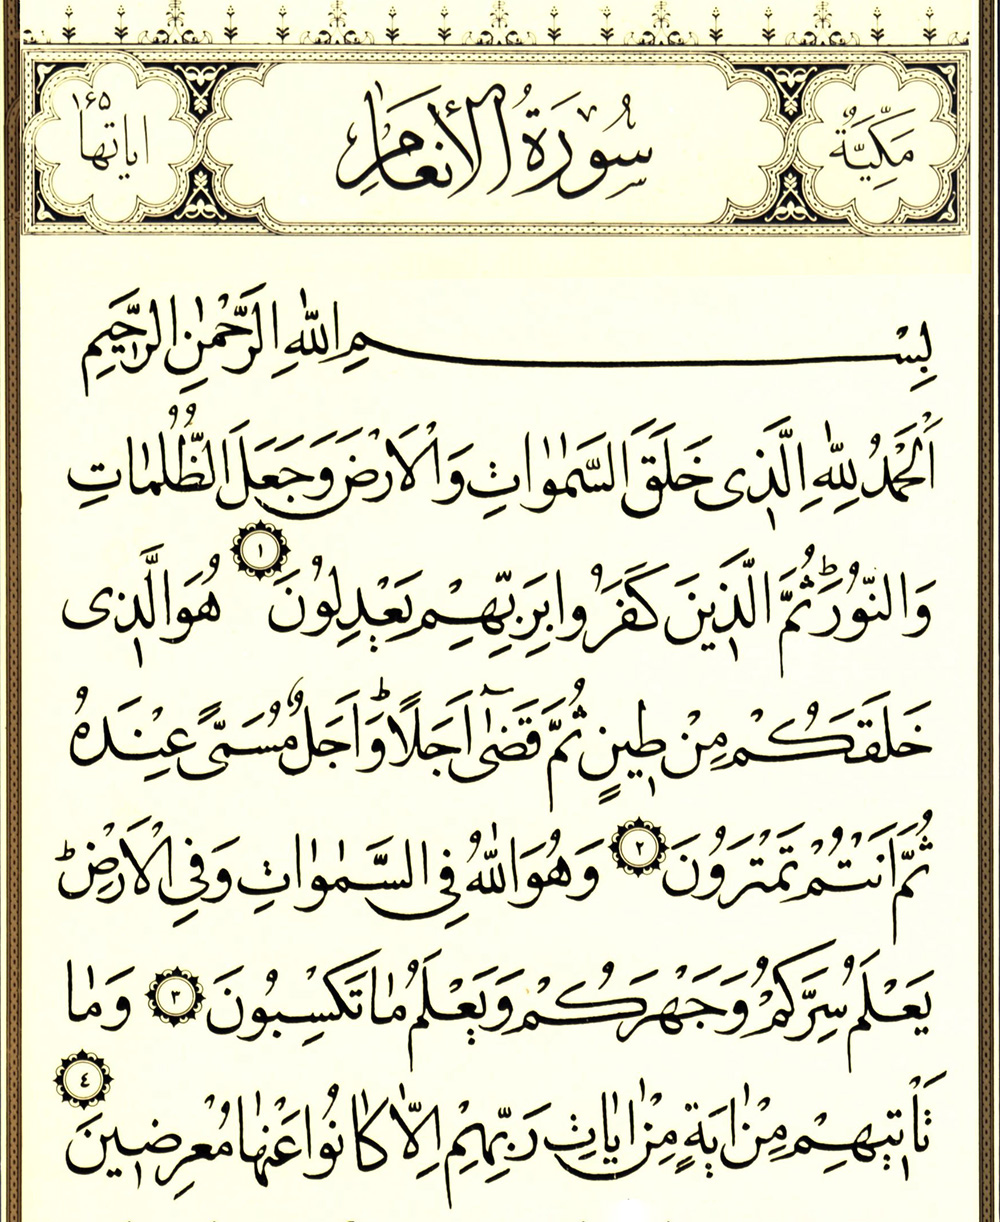 مَكِّيَّةٌ
سُورَةُ الْأَنْعَامِ
۱۶۵
اياتها
بِسْمِ اللّٰهِ الرَّحْمٰنِ الرَّحِيمِ
اَلْحَمْدُ لِلّٰهِ الَّذ۪ى خَلَقَ السَّمٰوَاتِ وَالْاَرْضَ وَجَعَلَ الظُّلُمَاتِ
وَالنُّورَۜ ثُمَّ الَّذ۪ينَ كَفَرُوا بِرَبِّهِمْ يَعْدِلُونَ ١ هُوَ الَّذ۪ى
خَلَقَكُمْ مِنْ ط۪ينٍ ثُمَّ قَضٰٓى اَجَلًاۜ وَاَجَلٌ مُسَمًّى عِنْدَهُ
ثُمَّ اَنْتُمْ تَمْتَرُونَ ٢ وَهُوَ اللّٰهُ فِى السَّمٰوَاتِ وَفِى الْاَرْضِۜ
يَعْلَمُ سِرَّكُمْ وَجَهْرَكُمْ وَيَعْلَمُ مَا تَكْسِبُونَ ٣ وَمَا
تَاْت۪يهِمْ مِنْ اٰيَةٍ مِنْ اٰيَاتِ رَبِّهِمْ اِلَّا كَانُوا عَنْهَا مُعْرِض۪ينَ ٤